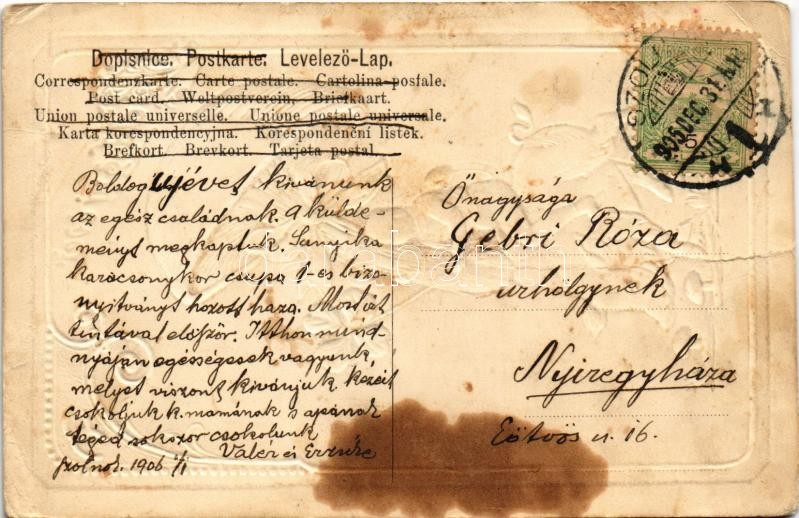 Dopisnice. Postkarte. Levelező-Lap.
Correspondenzkarte. Carte postale. Cartolina-postale.
Post card. Weltpostverein. Briefkaart.
Union postale universelle. Unione postale universale.
Karta korespondencyjna. Korespondenční lístek.
Brefkort. Brevkort. Tarjeta postal.
Boldog ujévet kivánunk
az egész családnak. A külde-
ményt megkaptuk. Sanyika
karácsonykor csupa 1-es bizo
nyitványt hozott haza. Most irt
tintával először. Itthon mind-
nyájan egésségesek vagyunk,
melyet viszont kivánjuk. Kezeit
csokoljuk k. mamának s apának
téged sokszor csokolunk
Valér és Erzsike
Szolnok. 1906 1/1
905 DEC. 31.
Önagysága
Gebri Róza
urhölgynek
Nyiregyháza
Eötvös u. 16.
darabanth